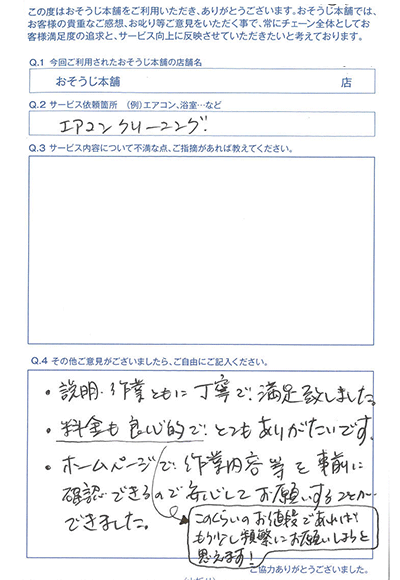 この度はおそうじ本舗をご利用いただき、ありがとうございます。おそうじ本舗では、
お客様の貴重なご感想、お叱り等ご意見をいただく事で、常にチェーン全体としてお
客様満足度の追求と、サービス向上に反映させていただきたいと考えております。
Q.1 今回ご利用されたおそうじ本舗の店舗名
おそうじ本舗 店
Q.2 サービス依頼箇所 (例)エアコン、浴室…など
エアコンクリーニング
Q.3 サービス内容について不満な点、ご指摘があれば教えてください。
Q.4 その他ご意見がございましたら、ご自由にご記入ください。
・説明・作業ともに丁寧で満足致しました。
・料金も良心的で、とてもありがたいです。
・ホームページで、作業内容等を事前に
確認できるので安心してお願いすることが
できました。
このくらいのお値段であれば、
もう少し頻繁にお願いしようと
思えます!
ご協力ありがとうございました。